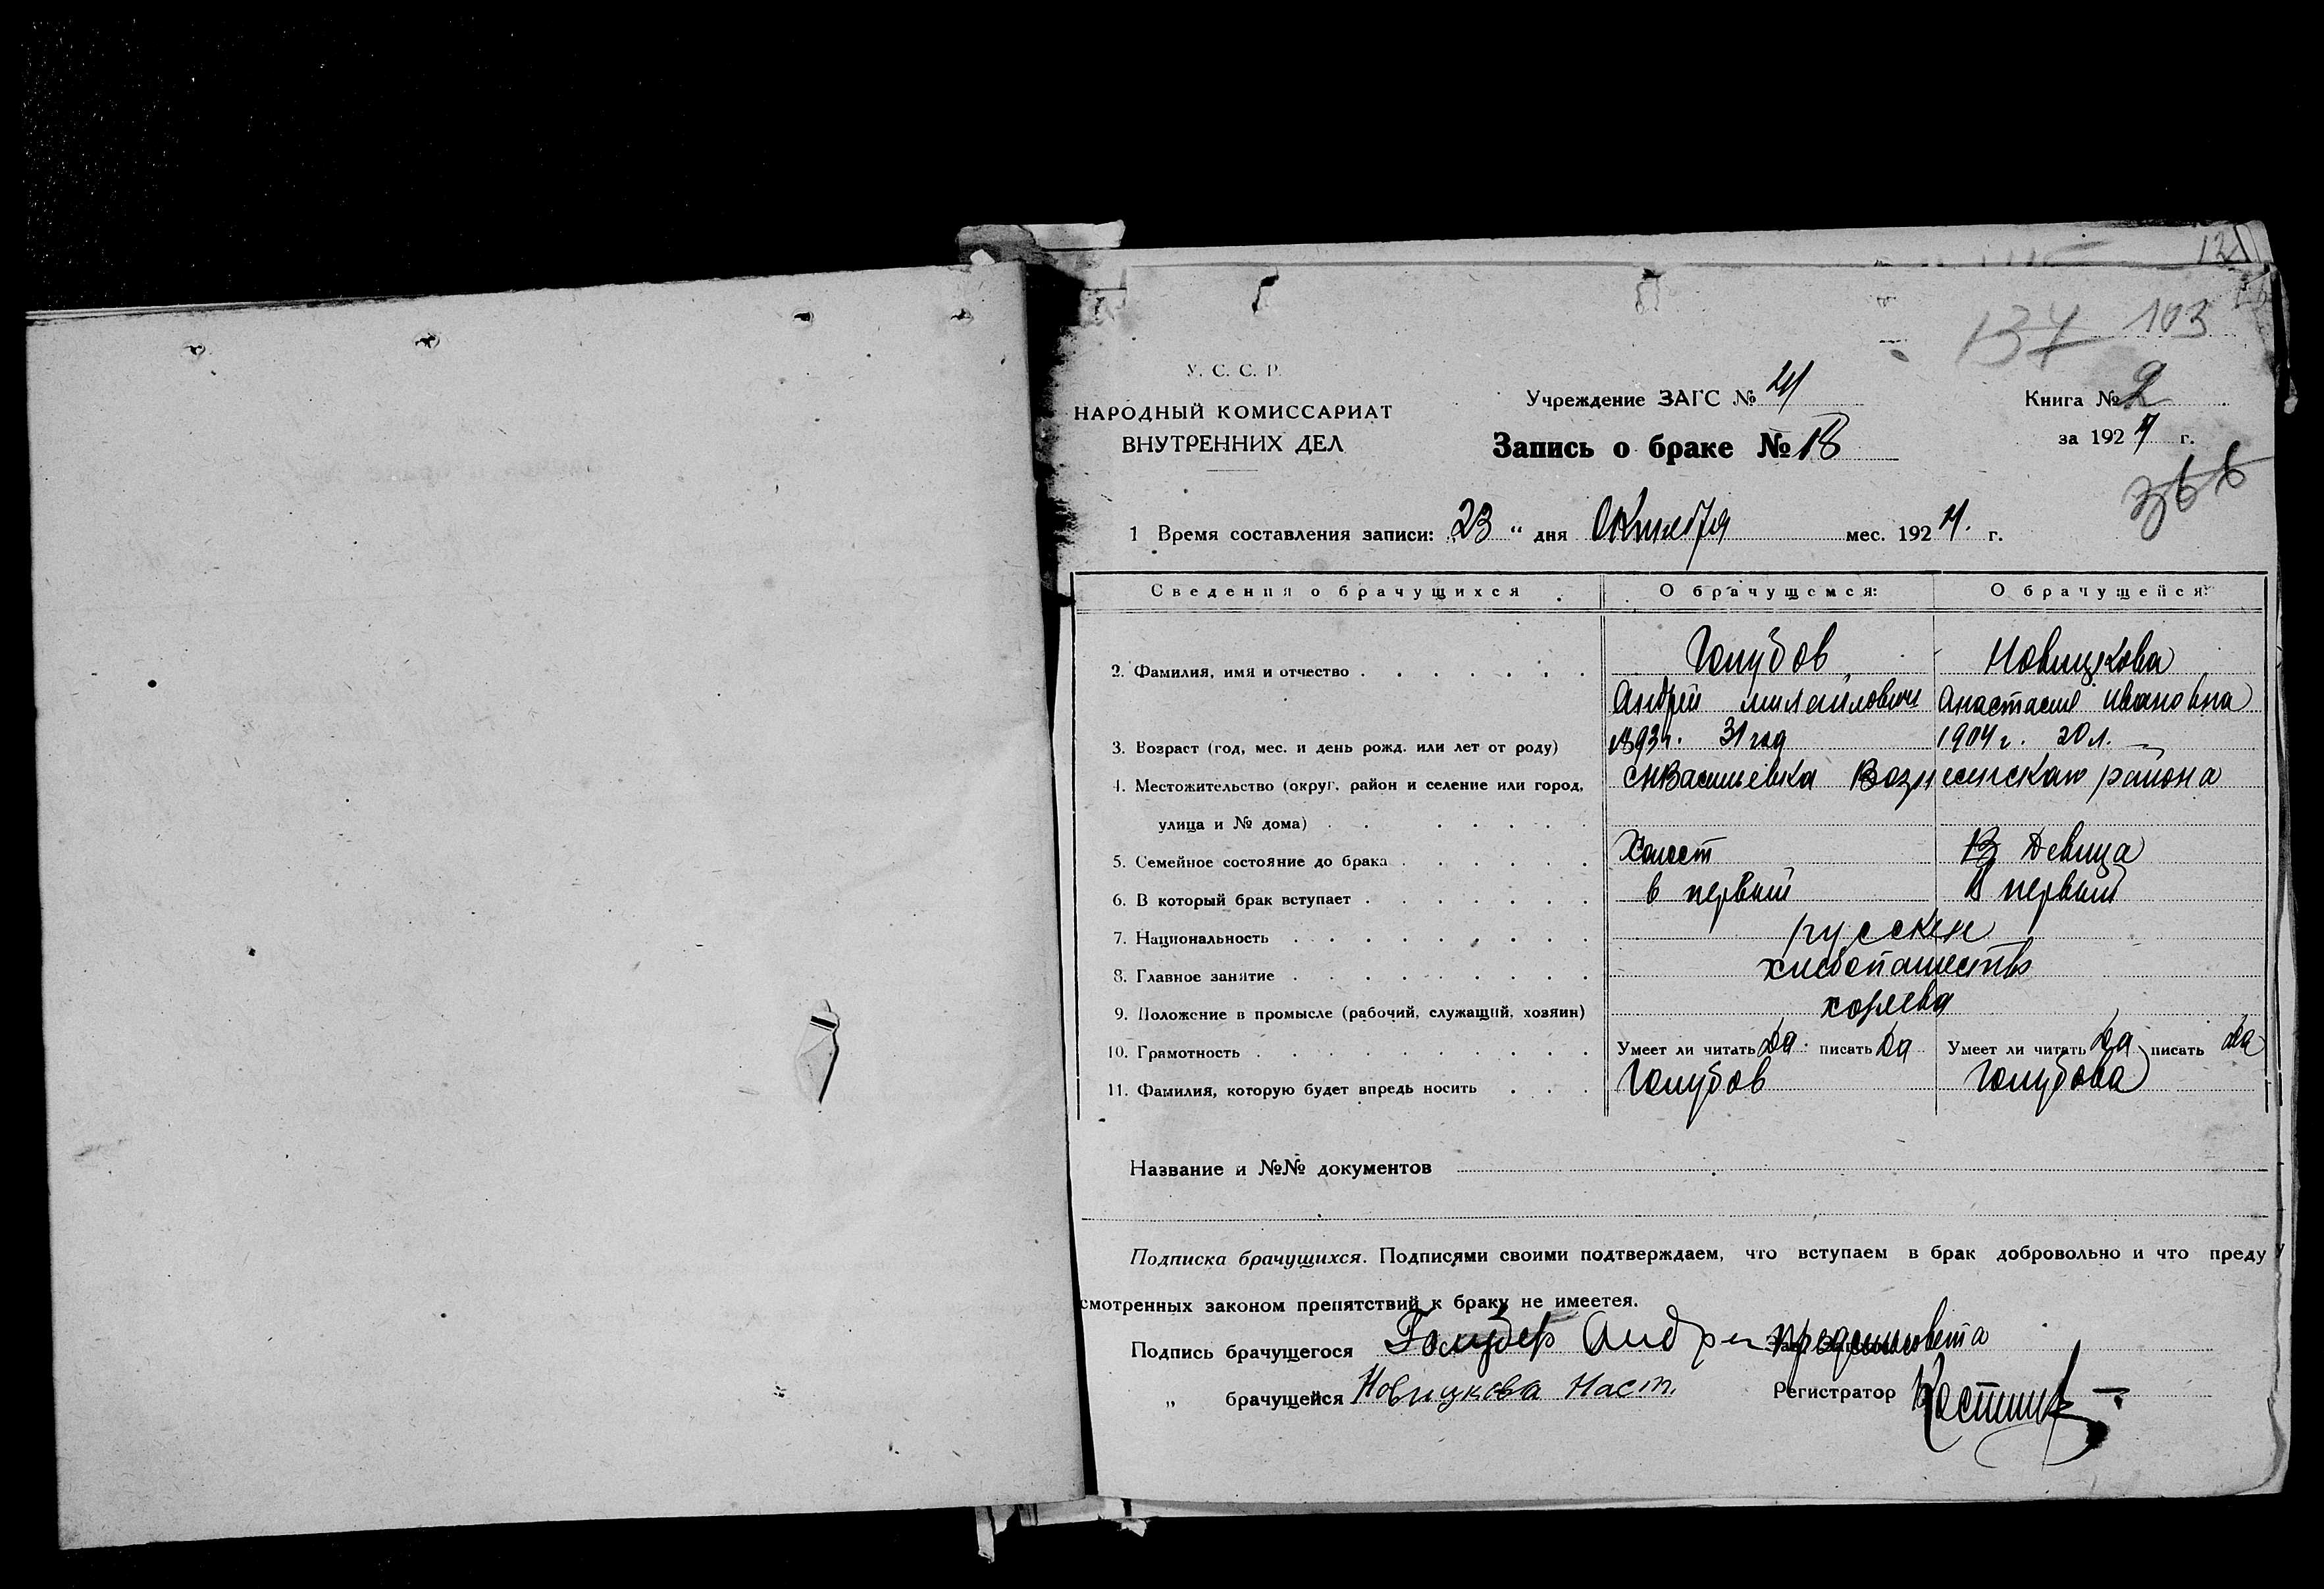 134 103
У. С. С. Р.
НАРОДНЫЙ КОМИССАРИАТ
ВНУТРЕННИХ ДЕЛ
Учреждение ЗАГС №
Запись о браке № 18
Книга № 2
за 1924 г.
366
1 Время составления записи: „23“ дня Октября мес. 1924. г.
Сведения о брачущихся О брачущемся: О брачущейся:
2. Фамилия, имя и отчество Голубов Новицкова
Андрей михайлович Анастасия Ивановна
3. Возраст (год, мес. и день рожд. или лет от роду) 1893г. 31 год 1904 г. 20 л.
4. Местожительство (округ, район и селение или город, Васильевка Вознесенского района
улица и № дома)
5. Семейное состояние до брака Холост Девица
6. В который брак вступает в первый В первый
7. Национальность русские
8. Главное занятие хлебопашество
9. Положение в промысле (рабочий, служащий, хозяин) хозяева
10. Грамотность Умеет ли читать Да писать Да Умеет ли читать Да писать Да
11. Фамилия, которую будет впредь носить Голубов Голубова
Название и №№ документов
Подписка брачущихся. Подписями своими подтверждаем, что вступаем в брак добровольно и что преду
смотренных законом препятствий к браку не имеетея.
Подпись брачущегося Голубев Андре
„ брачущейся Новицкова Наст. Регистратор